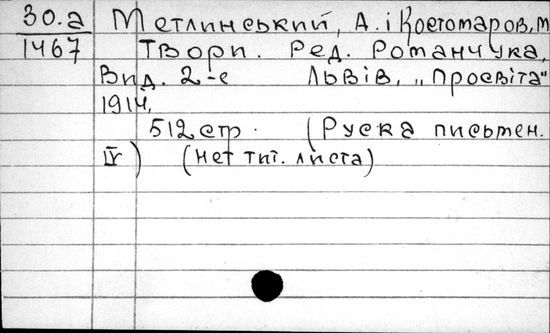 30.а Метлинський, А. і Костомаров, М
1467 Твори. Ред. Романчука,
Вид. 2-е Львів, „Просвіта"
1914.
512 стр. (Руска письмен.
IV) (нет тит. листа)